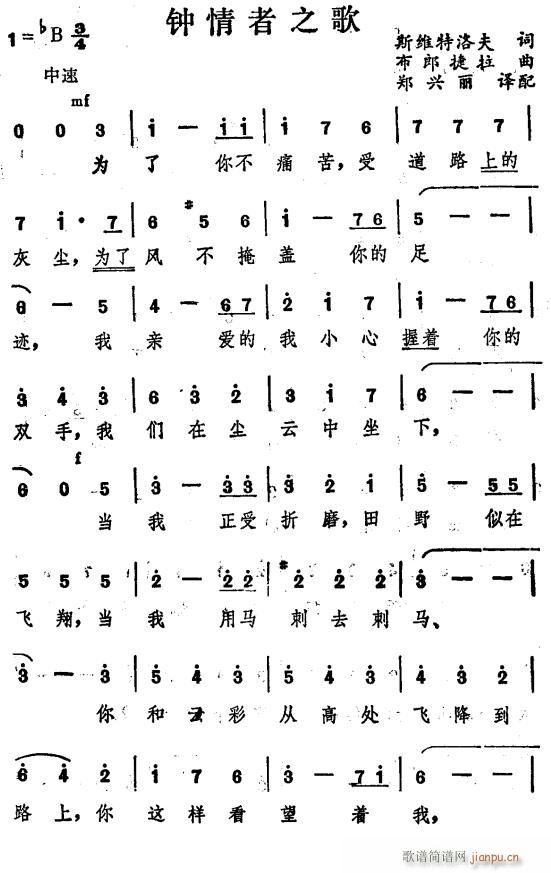 钟情者之歌
1=♭B 3/4
斯维特洛夫 词
布郎捷拉 曲
郑兴丽 译配
中速
mf
0 0 3 | i — i i | i 7 6 | 7 7 7 |
为了 你不痛苦,受道路上的
7 i· 7 | 6 #5 6 | i — 7 6 | 5 — — |
灰尘,为了风不掩盖 你的足
6 — 5 | 4 — 6 7 | 2 i 7 | i — 7 6 |
迹, 我亲 爱的我小心握着 你的
3 4 3 | 6 3 2 | 3 i 7 | 6 — — |
双手,我们在尘云中坐下,
f
6 0 5 | 3 — 3 3 | 3 2 i | 5 — 5 5 |
当我 正受折磨,田野 似在
5 5 5 | 2 — 2 2 | #2 2 2 | 3 — — |
飞翔,当我 用马刺去刺马、
3 — 3 | 5 4 3 | 5 4 3 | 4 3 2 |
你和云彩从高处飞降到
6 4 2 | i 7 6 | 3 — 7 i | 6 — — |
路上,你这样看望 着我,
歌谱简谱网 jianpu.cn